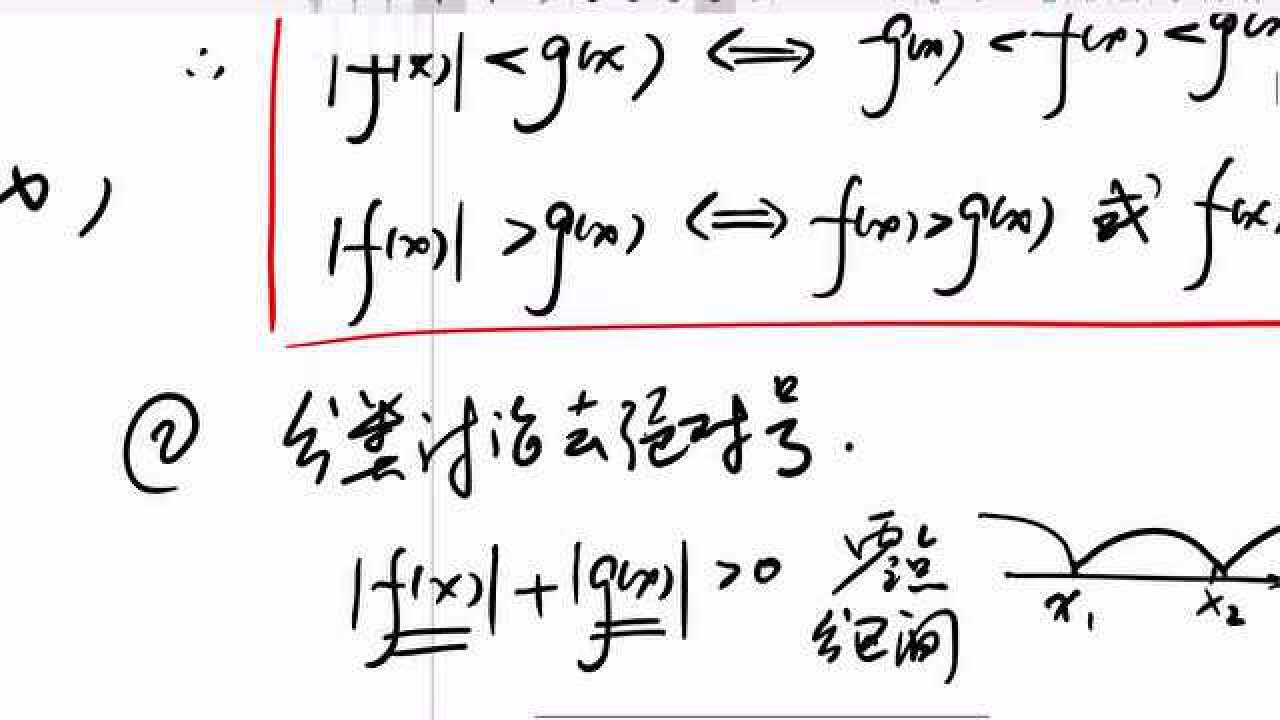 ∴ |f(x)| < g(x) ⟺ -g(x) < f(x) < g(x
,
|f(x)| > g(x) ⟺ f(x) > g(x) 或 f(x)
② 分类讨论去绝对号.
|f(x)| + |g(x)| > 0 零点
分区间
x₁ x₂